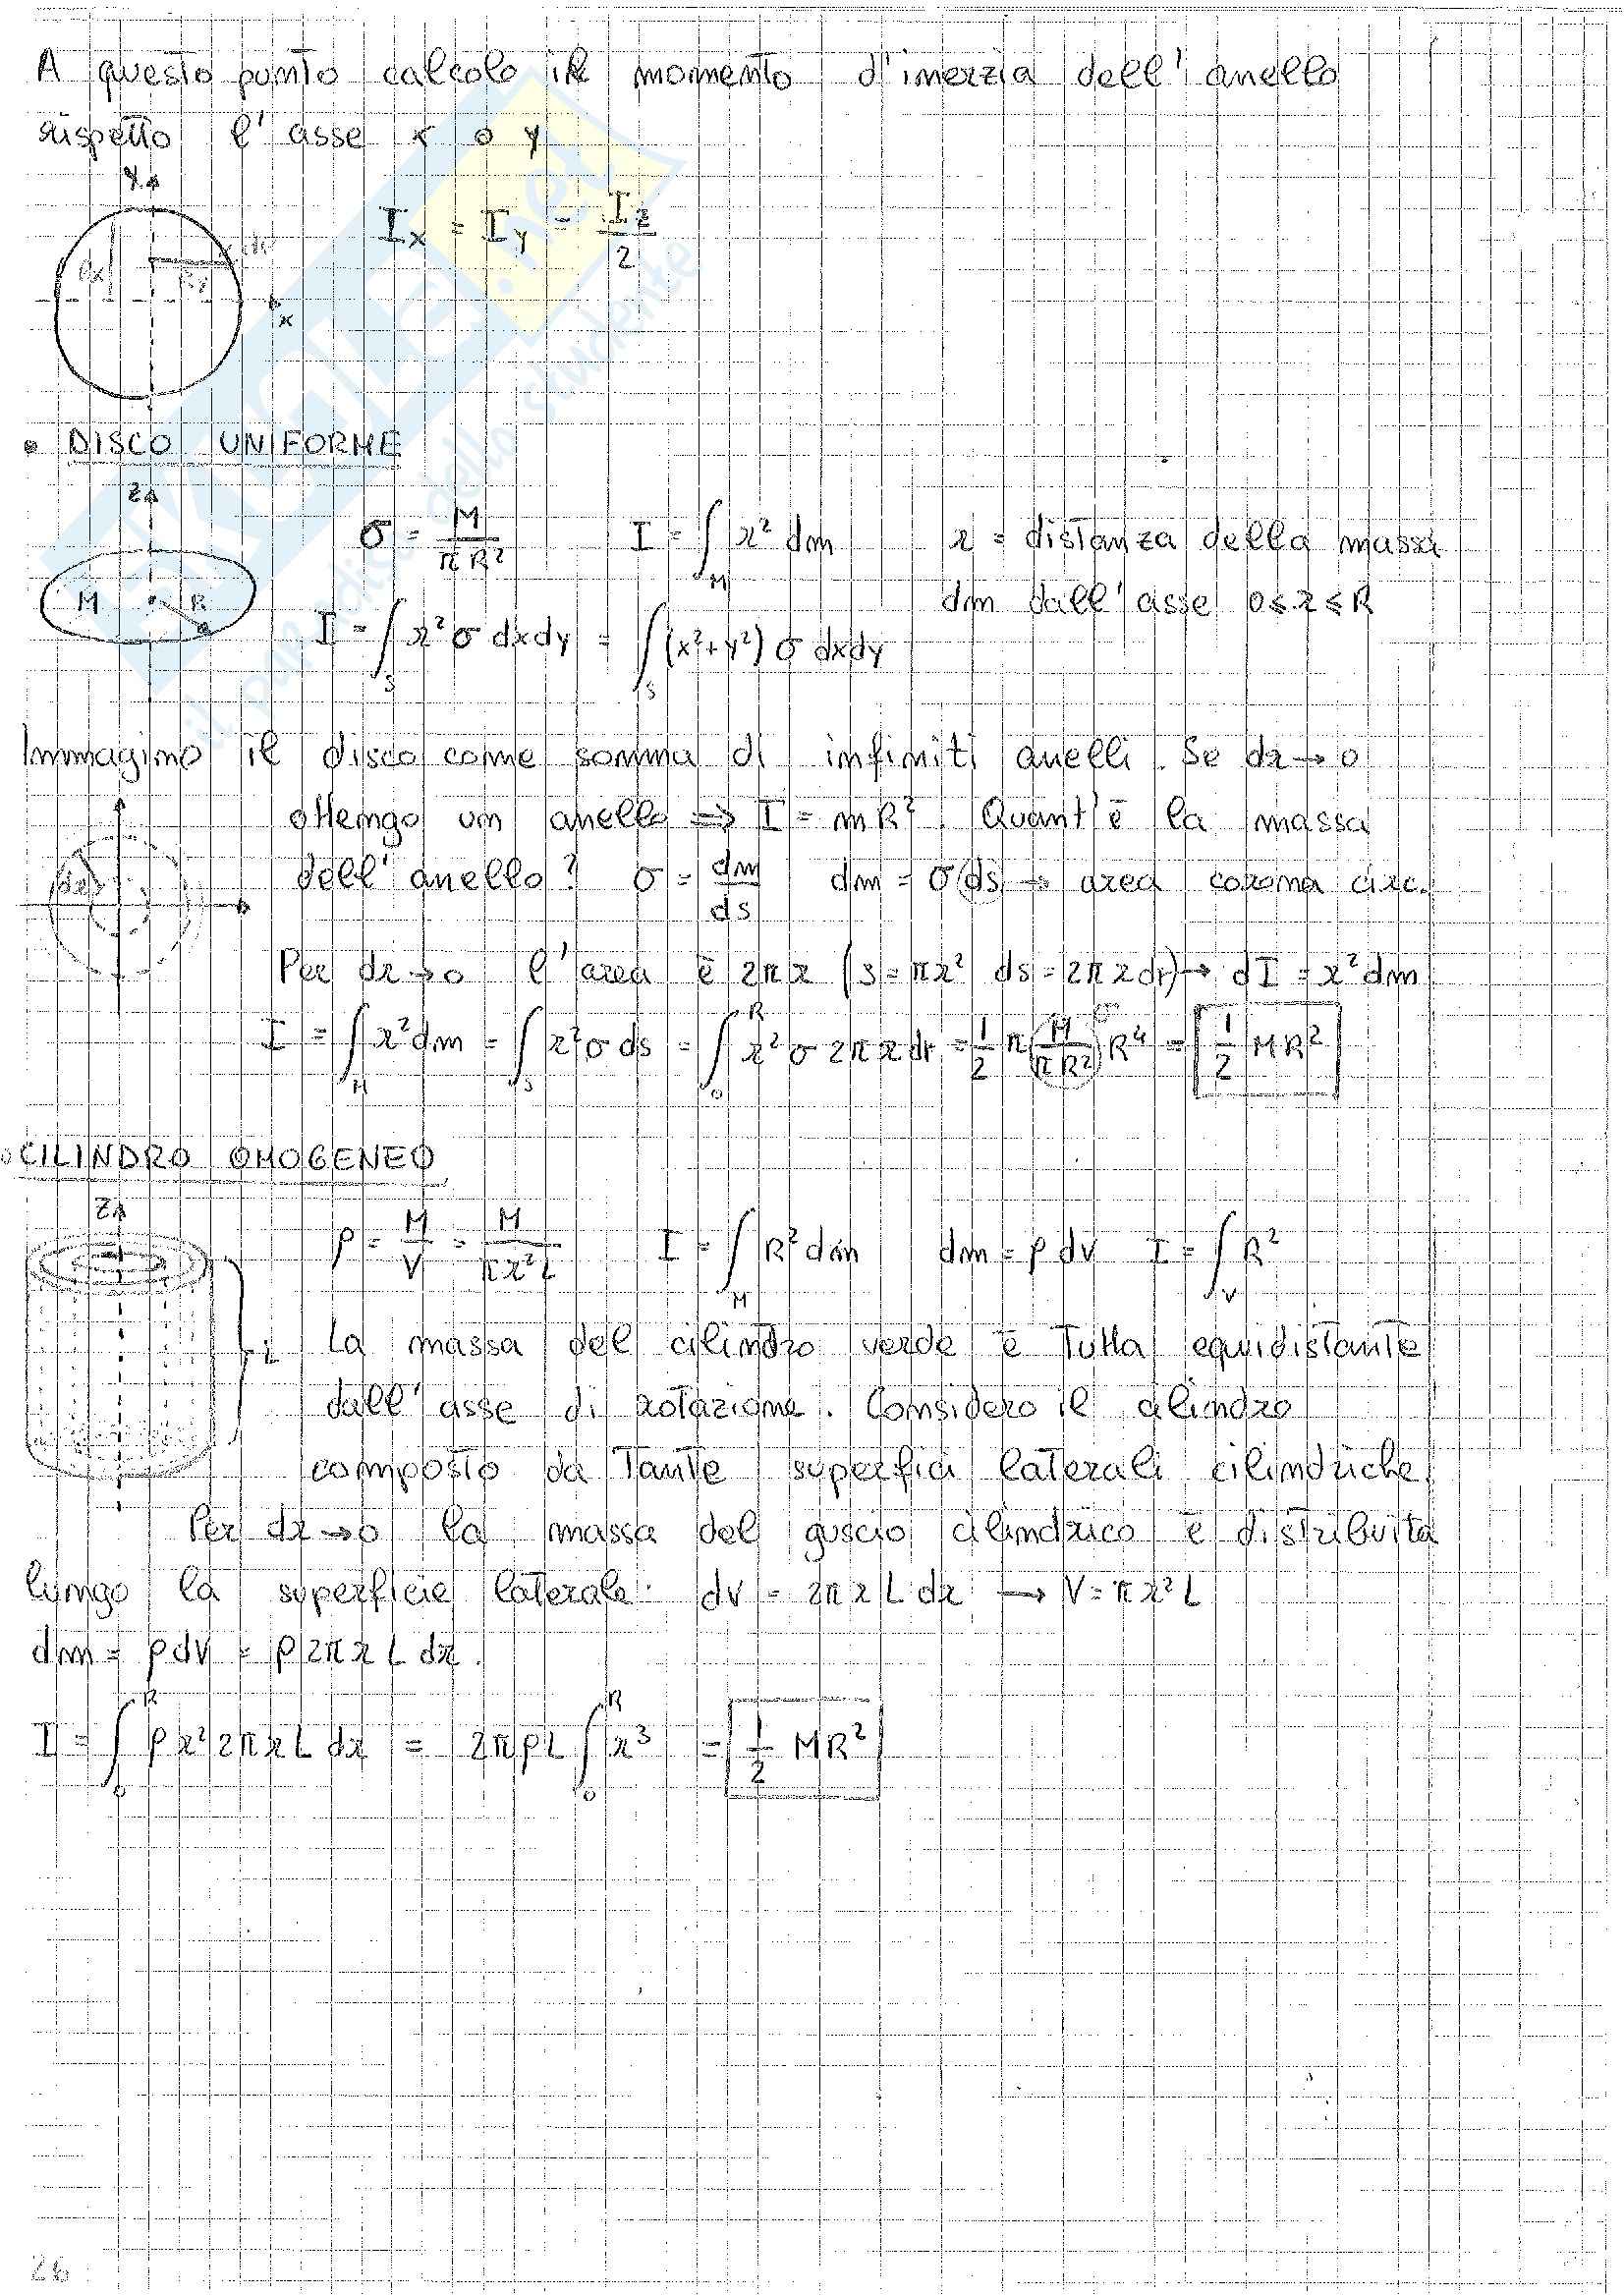 A questo punto calcolo il momento d'inerzia dell'anello
rispetto l'asse x o y
y
x
Ix = Iy = Iz/2
• DISCO UNIFORME
z
M R
σ = M/πR² I = ∫_M r² dm r = distanza della massa
dm dall'asse 0≤r≤R
I = ∫_S r² σ dxdy = ∫_S (x²+y²) σ dxdy
Immagino il disco come somma di infiniti anelli. Se dr→0
ottengo un anello ⇒ I = mR². Quant'è la massa
dell'anello? σ = dm/ds dm = σ ds → area corona circ.
Per dr→0 l'area è 2πr (s=πr² ds=2πrdr) → dI = r²dm
I = ∫_M r²dm = ∫_S r²σ ds = ∫_0^R r²σ 2πr dr = 1/2 π (M/πR²) R⁴ = 1/2 MR²
σ
CILINDRO OMOGENEO
z
ρ = M/V = M/πr²L I = ∫_M R² dm dm = ρ dV I = ∫_V R²
L La massa del cilindro verde è tutta equidistante
dall'asse di rotazione. Considero il cilindro
composto da tante superfici laterali cilindriche.
Per dr→0 la massa del guscio cilindrico è distribuita
lungo la superficie laterale. dV = 2πr L dr → V=πr²L
dm = ρdV = ρ2πr L dr.
I = ∫_0^R ρ r² 2πrL dr = 2πρL ∫_0^R r³ = 1/2 MR²
26